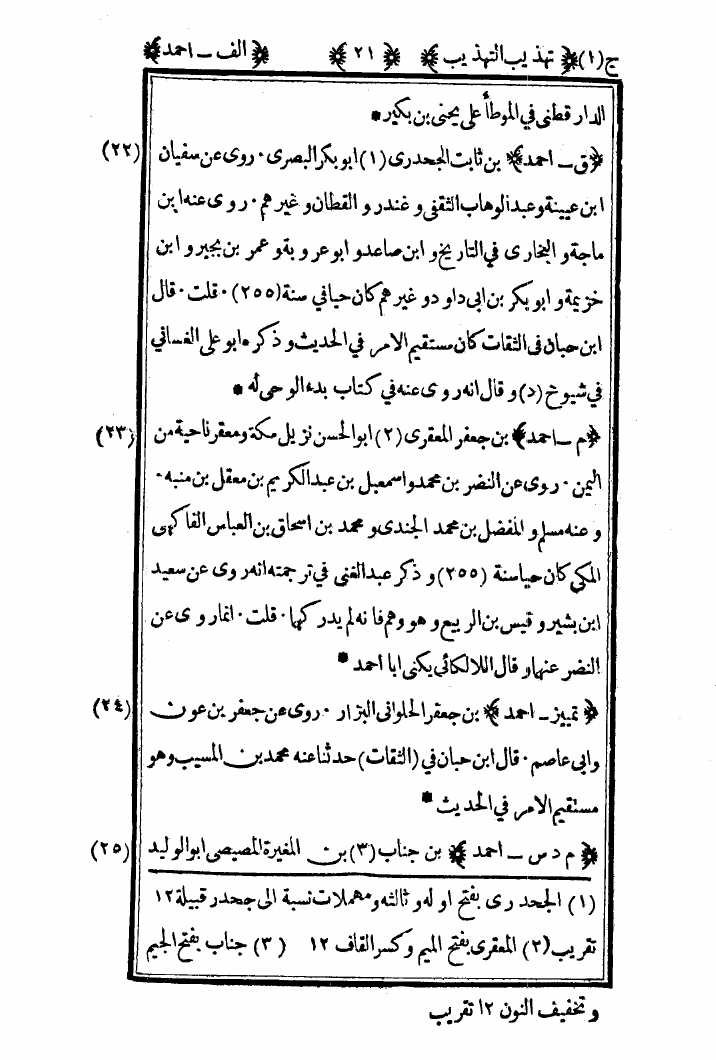 ج(١) ﴿ تهذيب التهذيب ﴾ ﴿ ٢١ ﴾ ﴿ الف ــ احمد ﴾
الدار قطنى في الموطأ على يحيى بن بكير *
﴿ ق ــ احمد ﴾ بن ثابت الجحدرى (١) ابو بكر البصرى ٠ روى عن سفيان (٢٢)
ابن عيينة وعبد الوهاب الثقفى و غندر و القطان و غيرهم ٠ روى عنه ابن
ماجة و البخارى في التاريخ و ابن صاعد و ابو عروبة و عمر بن بجير و ابن
خزيمة و ابو بكر بن ابى داود و غيرهم كان حيا في سنة (٢٥٥) ٠ قلت ٠ قال
ابن حبان فى الثقات كان مستقيم الامر في الحديث و ذكره ابو على الغساني
في شيوخ (د) و قال انه روى عنه في كتاب بدء الوحى له *
﴿ م ــ احمد ﴾ بن جعفر المعقرى (٢) ابو الحسن نزيل مكة ومعقر ناحية من (٢٣)
اليمن ٠ روى عن النضر بن محمد و اسمعيل بن عبد الكريم بن معقل بن منبه ٠
و عنه مسلم و المفضل بن محمد الجندى و محمد بن اسحاق بن العباس الفاكهى
المكي كان حيا سنة (٢٥٥) و ذكر عبد الغنى في ترجمته انه روى عن سعيد
ابن بشير و قيس بن الربيع و هو وهم فانه لم يدركها ٠ قلت ٠ انما روى عن
النضر عنها و قال اللالكائى يكنى ابا احمد *
﴿ تمييز ــ احمد ﴾ بن جعفر الحلوانى البزار ٠ روى عن جعفر بن عون (٢٤)
وابى عاصم ٠ قال ابن حبان في (الثقات) حدثنا عنه محمد بن المسيب و هو
مستقيم الامر في الحديث *
﴿ م د س ــ احمد ﴾ بن جناب (٣) بن المغيرة المصيصى ابو الوليد (٢٥)
(١) الجحدرى بفتح اوله و ثالثه و مهملات نسبة الى جحدر قبيلة ١٢
تقريب (٢) المعقرى بفتح الميم وكسر القاف ١٢ (٣) جناب بفتح الجيم
و تخفيف النون ١٢ تقريب